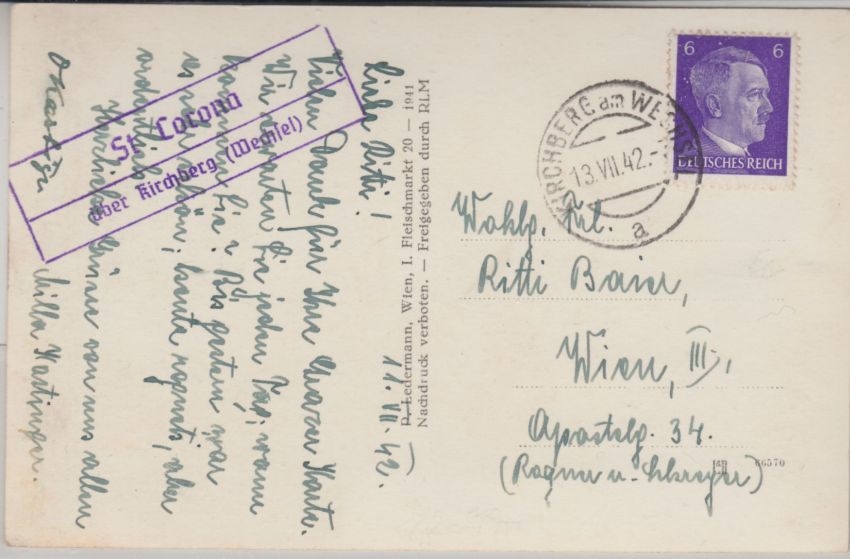 11. VII. 42.
Liebe Ritti!
Vielen Dank für Ihre Karte.
Wir Sie jeden Tag, wann
kommen Sie? Bis gestern war
es schön, heute regnet's, aber
Herzliche Grüße von uns allen
Milla Hartinger.
St. Corona
über Kirchberg (Wechsel)
P. Ledermann, Wien, I. Fleischmarkt 20 — 1941
Nachdruck verboten. — Freigegeben durch RLM
6 6
DEUTSCHES REICH
KIRCHBERG am WECHSEL
13.VII.42.-
a
Wohlg. Frl.
Ritti Baier,
Wien, III.,
Apostelg. 34.
(Rogner u. Schreyer)
66570